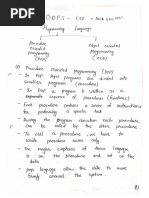 OOPS -
Programming Language
Procedure Oriented Programming (POP)
Object Oriented Programming (OOP)
Procedure Oriented Programming (POP)
In POP large programs are divided into smaller programs (procedure).
In POP a program is written as a separate sequence of procedures (functions)
Each procedure contains a series of instructions for performing a specific task.
During the program execution each procedure can be called by the other procedure.
To call a procedure we have to write procedure name only.
The major emphasis of this language is on the procedure and not on the data.
POP language allow the data to move freely around the system